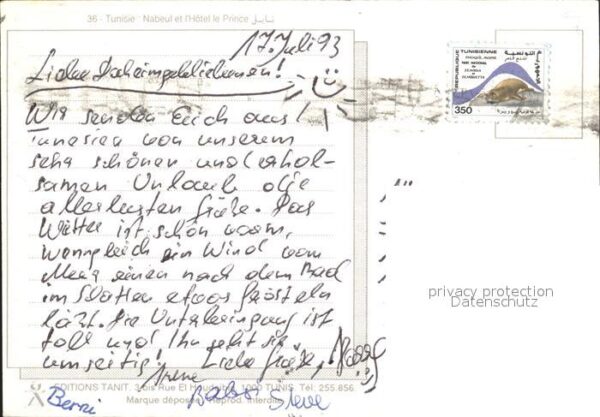 36 - Tunisie : Nabeul et l'Hôtel le Prince نابل
17. Juli 93
Liebe Daheimgebliebenen!
Wir senden Euch aus
Tunesien von unserem
sehr schönen und erhol-
samen Urlaub die
allerbesten Grüße. Das
Wetter ist schön warm,
wenngleich ein Wind vom
Meer einen nach dem Bad
im Schatten etwas frösteln
läßt. Die Unterbringung ist
toll und Ihr seht sie
umseitig! Liebe Grüße,
Irene
Berni
Steve
EDITIONS TANIT. 3 bis Rue El Houdaibia 1000 TUNIS Tél. 255.856
Marque déposée Reprod. Interdite
REPUBLIQUE TUNISIENNE
350
privacy protection
Datenschutz